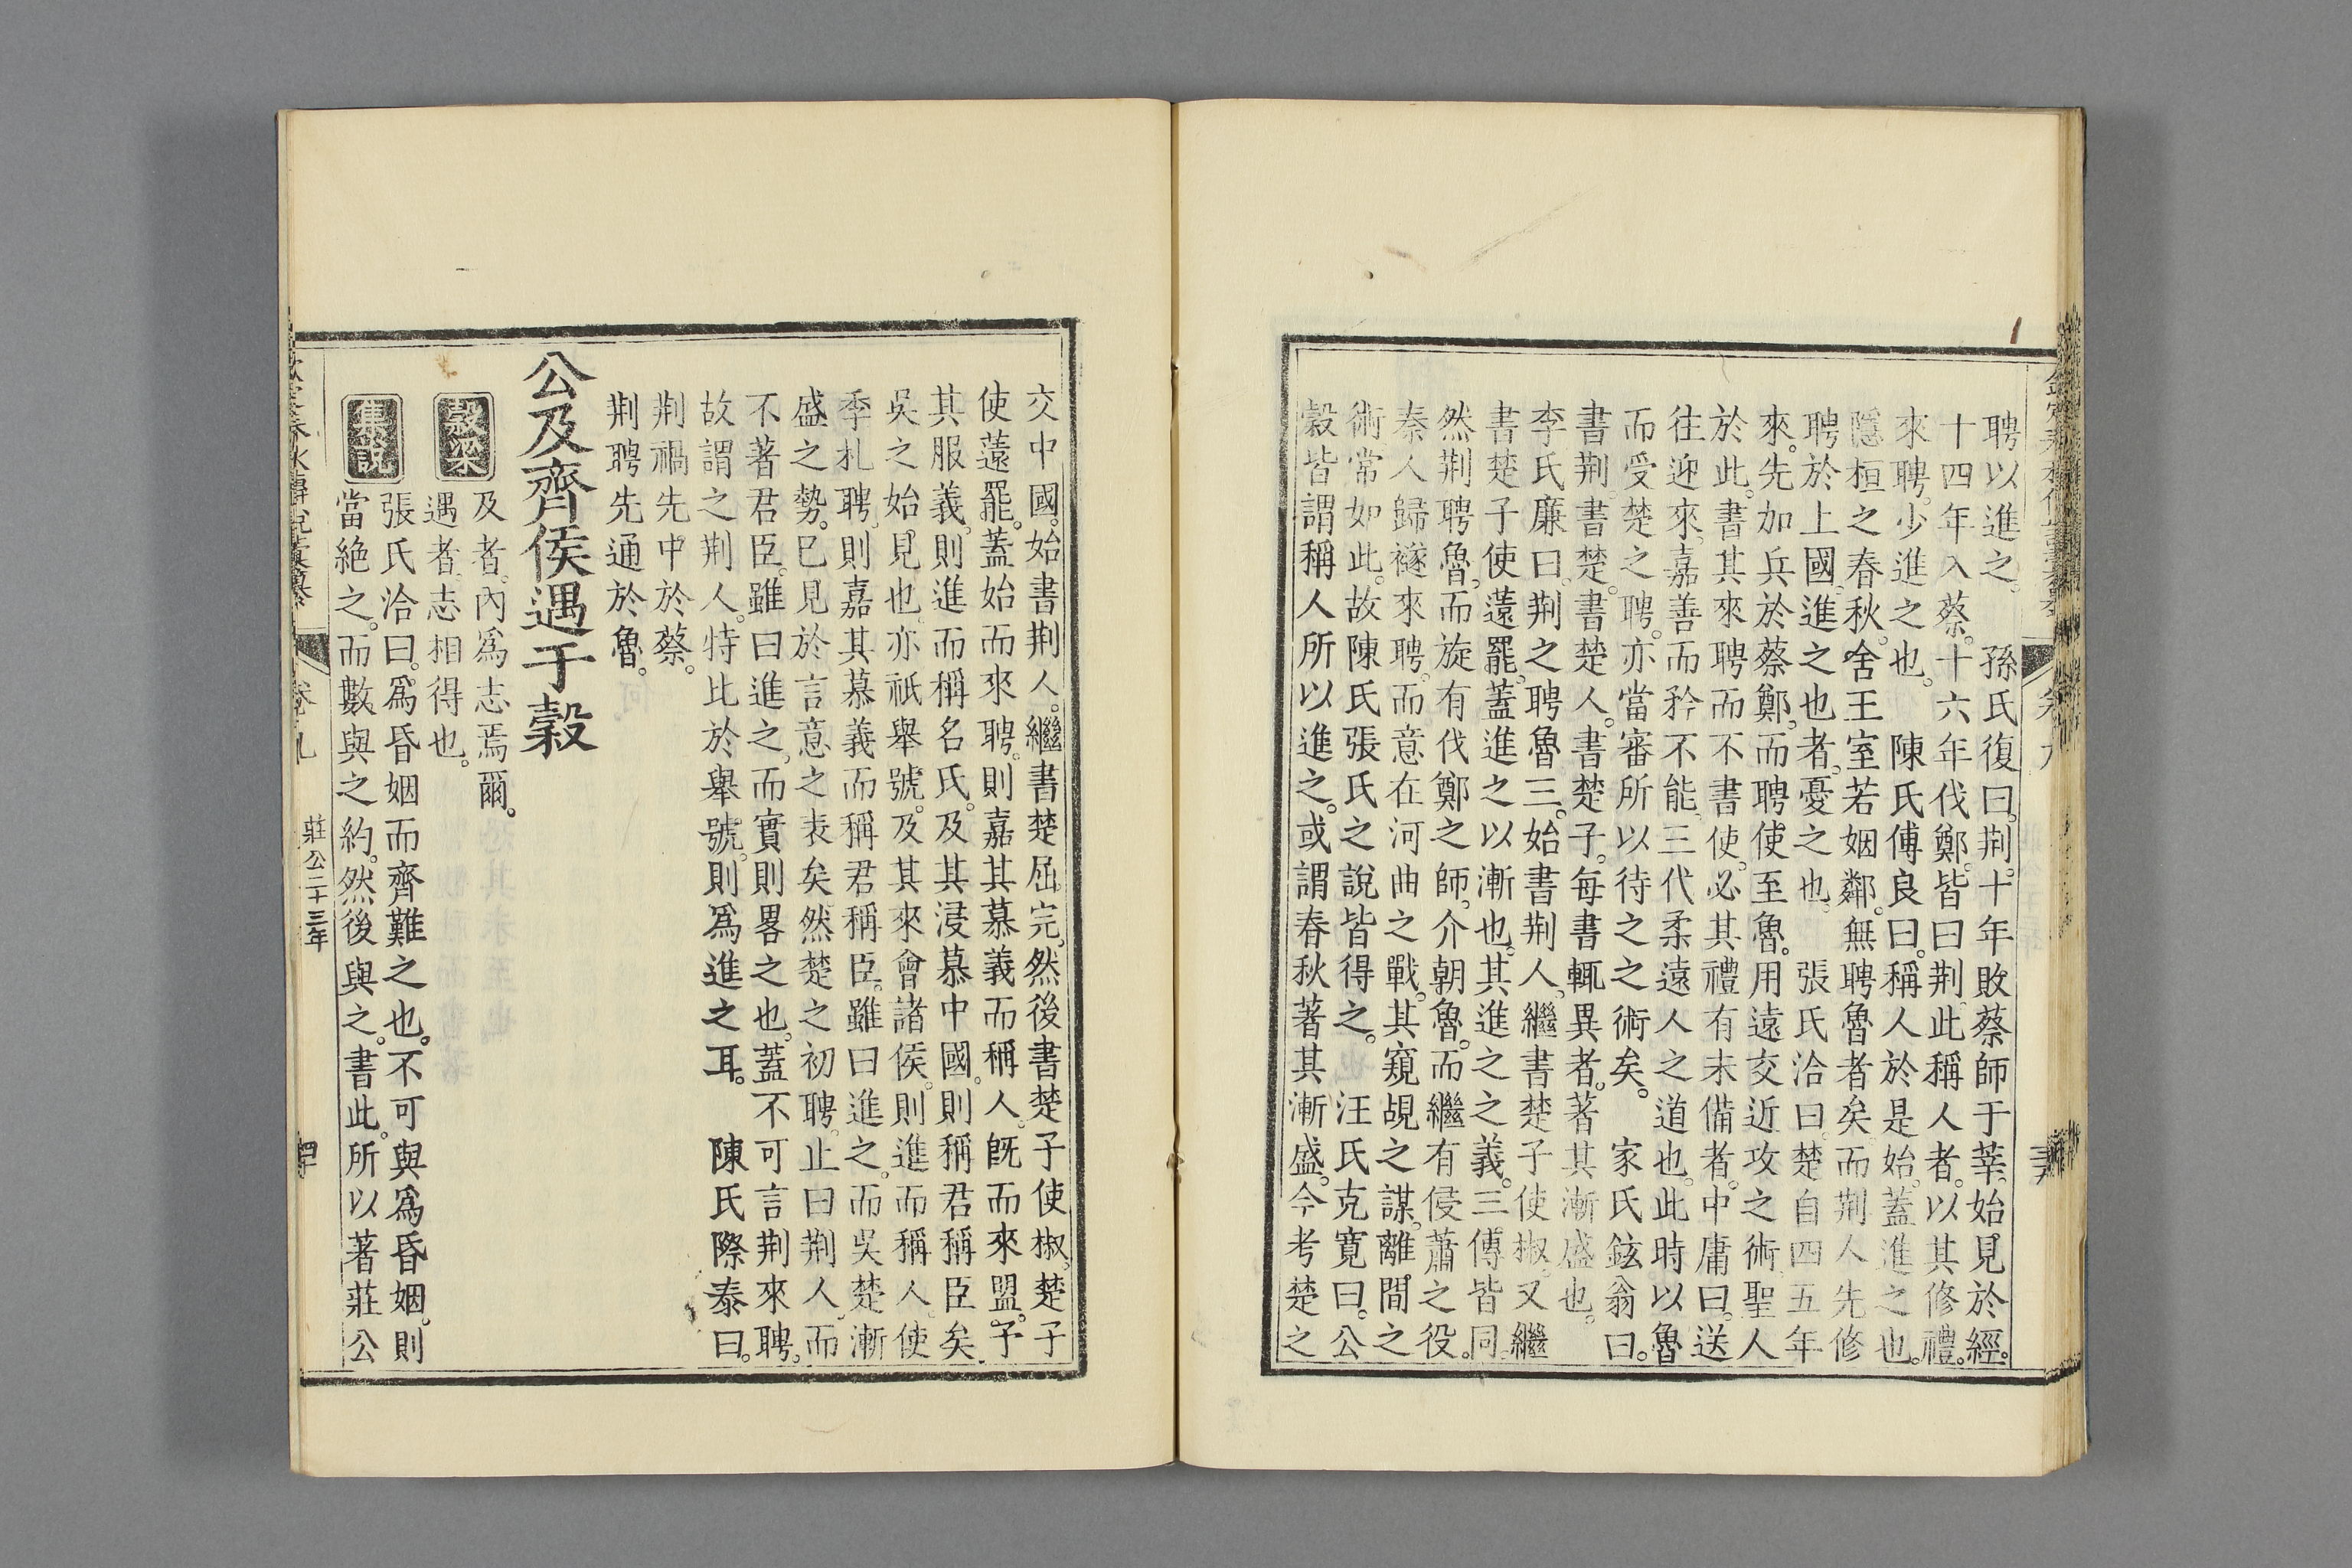 聘以進之。　孫氏復曰。荆。十年敗蔡師于莘。始見於經。
十四年入蔡。十六年伐鄭。皆曰荆。此稱人者。以其修禮
來聘。少進之也。　陳氏傅良曰。稱人於是始。蓋進之也。
隱桓之春秋。舍王室若姻鄰。無聘魯者矣。而荆人先修
聘於上國。進之也者。憂之也。　張氏洽曰。楚自四五年
來。先加兵於蔡鄭。而聘使至魯。用遠交近攻之術。聖人
於此。書其來聘而不書使。必其禮有未備者。中庸曰。送
往迎來。嘉善而矜不能。三代柔遠人之道也。此時以魯
而受楚之聘。亦當審所以待之之術矣。　家氏鉉翁曰。
書荆。書楚。書楚人。書楚子。每書輒異者。著其漸盛也。
李氏廉曰。荆之聘魯三。始書荆人。繼書楚子使椒。又繼
書楚子使薳罷。蓋進之以漸也。其進之之義。三傳皆同。
然荆聘魯。而旋有伐鄭之師。介朝魯。而繼有侵蕭之役。
秦人歸襚來聘。而意在河曲之戰。其窺覘之謀。離間之
術。常如此。故陳氏張氏之說皆得之。　汪氏克寬曰。公
穀皆謂稱人所以進之。或謂春秋著其漸盛。今考楚之
交中國。始書荆人。繼書楚屈完。然後書楚子使椒。楚子
使薳罷。蓋始而來聘。則嘉其慕義而稱人。旣而來盟。予
其服義。則進而稱名氏。及其浸慕中國。則稱君稱臣矣
吳之始見也。亦祇舉號。及其來會諸侯。則進而稱人。使
季札聘。則嘉其慕義而稱君稱臣。雖曰進之。而吳楚漸
盛之勢。巳見於言意之表矣。然楚之初聘。止曰荆人。而
不著君臣。雖曰進之。而實則畧之也。蓋不可言荆來聘。
故謂之荆人。特比於舉號。則爲進之耳。　陳氏際泰曰。
荆禍先中於蔡。
荆聘先通於魯。
公及齊侯遇于穀
穀梁
及者。內爲志焉爾。
遇者。志相得也。
集說
張氏洽曰。爲昏姻而齊難之也。不可與爲昏姻。則
當絶之。而數與之約。然後與之。書此。所以著莊公
莊公二十三年